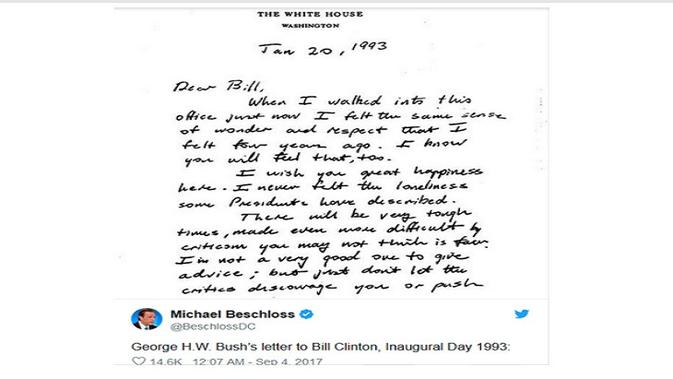 THE WHITE HOUSE
WASHINGTON
Jan 20, 1993
Dear Bill,
When I walked into this
office just now I felt the same sense
of wonder and respect that I
felt four years ago. I know
you will feel that, too.
I wish you great happiness
here. I never felt the loneliness
some Presidents have described.
There will be very tough
times, made even more difficult by
criticism you may not think is fair.
I'm not a very good one to give
advice; but just don't let the
critics discourage you or push
Michael Beschloss
@BeschlossDC
George H.W. Bush's letter to Bill Clinton, Inaugural Day 1993:
14.6K 12:07 AM - Sep 4, 2017